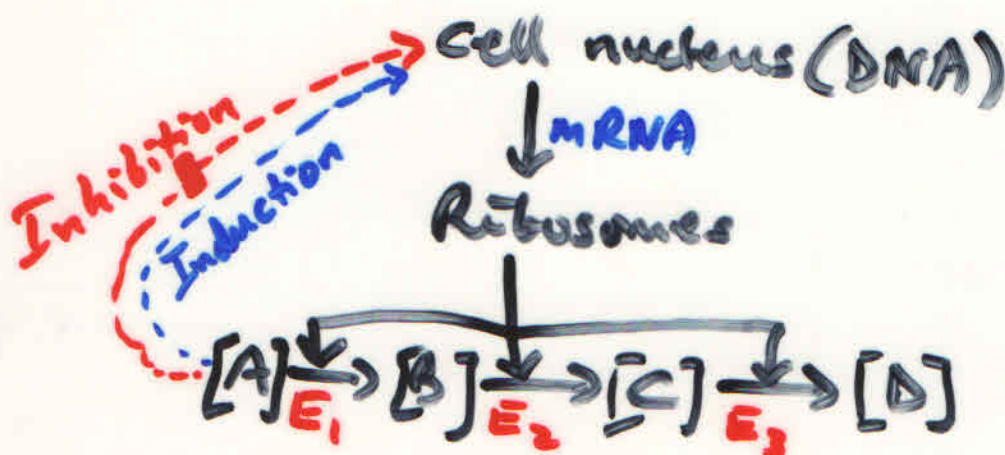 Cell nucleus (DNA)
mRNA
Inhibition
Induction
Ribosomes
[A] [B] [C] [D]
E₁ E₂ E₃